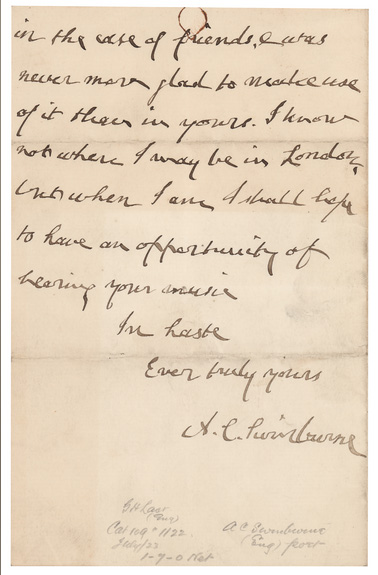 in the case of friends, & was
never more glad to make use
of it than in yours. I know
not when I may be in London,
but when I am I shall hope
to have an opportunity of
hearing your music
In haste
Ever truly yours
A. C. Swinburne
(Eng)
Cat 109 # 1122
July/22
1-7-0 Net
A C Swinburne
(Eng) poet